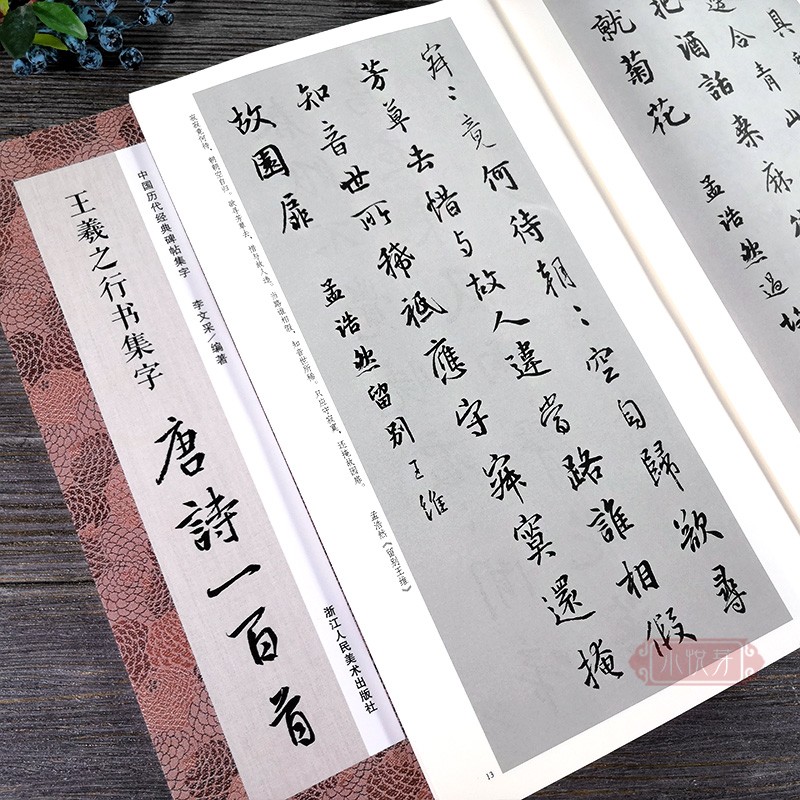 王羲之行书集字
唐詩一百首
中国历代经典碑帖集字 李文采/编著
浙江人民美术出版社
具
合青山
把酒話桑麻
就菊花 孟浩然過故
寂〻竟何待朝〻空自歸欲尋
芳草去惜与故人違當路誰相假
知音世所稀祗應守寂寞還掩
故園扉 孟浩然留别王维
寂寂竟何待,朝朝空自归。欲寻芳草去,惜与故人违。当路谁相假,知音世所稀。只应守寂寞,还掩故园扉。 孟浩然《留别王维》
13
小悦芽